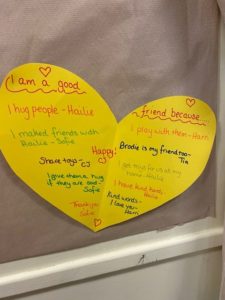 I am a good
I hug people - Hailie
I maked friends with
Hailie - Sofie
Share toys - CJ
Happy!
CJ
I give them a hug
if they are sad -
Sofie
Thank you
Sofie
friend because...
I play with them - Harri
Brodie is my friend too -
Tia
I get toys for us at my
home - Hailie
I have kind hands -
Hailie
Kind words -
I love you -
Harri